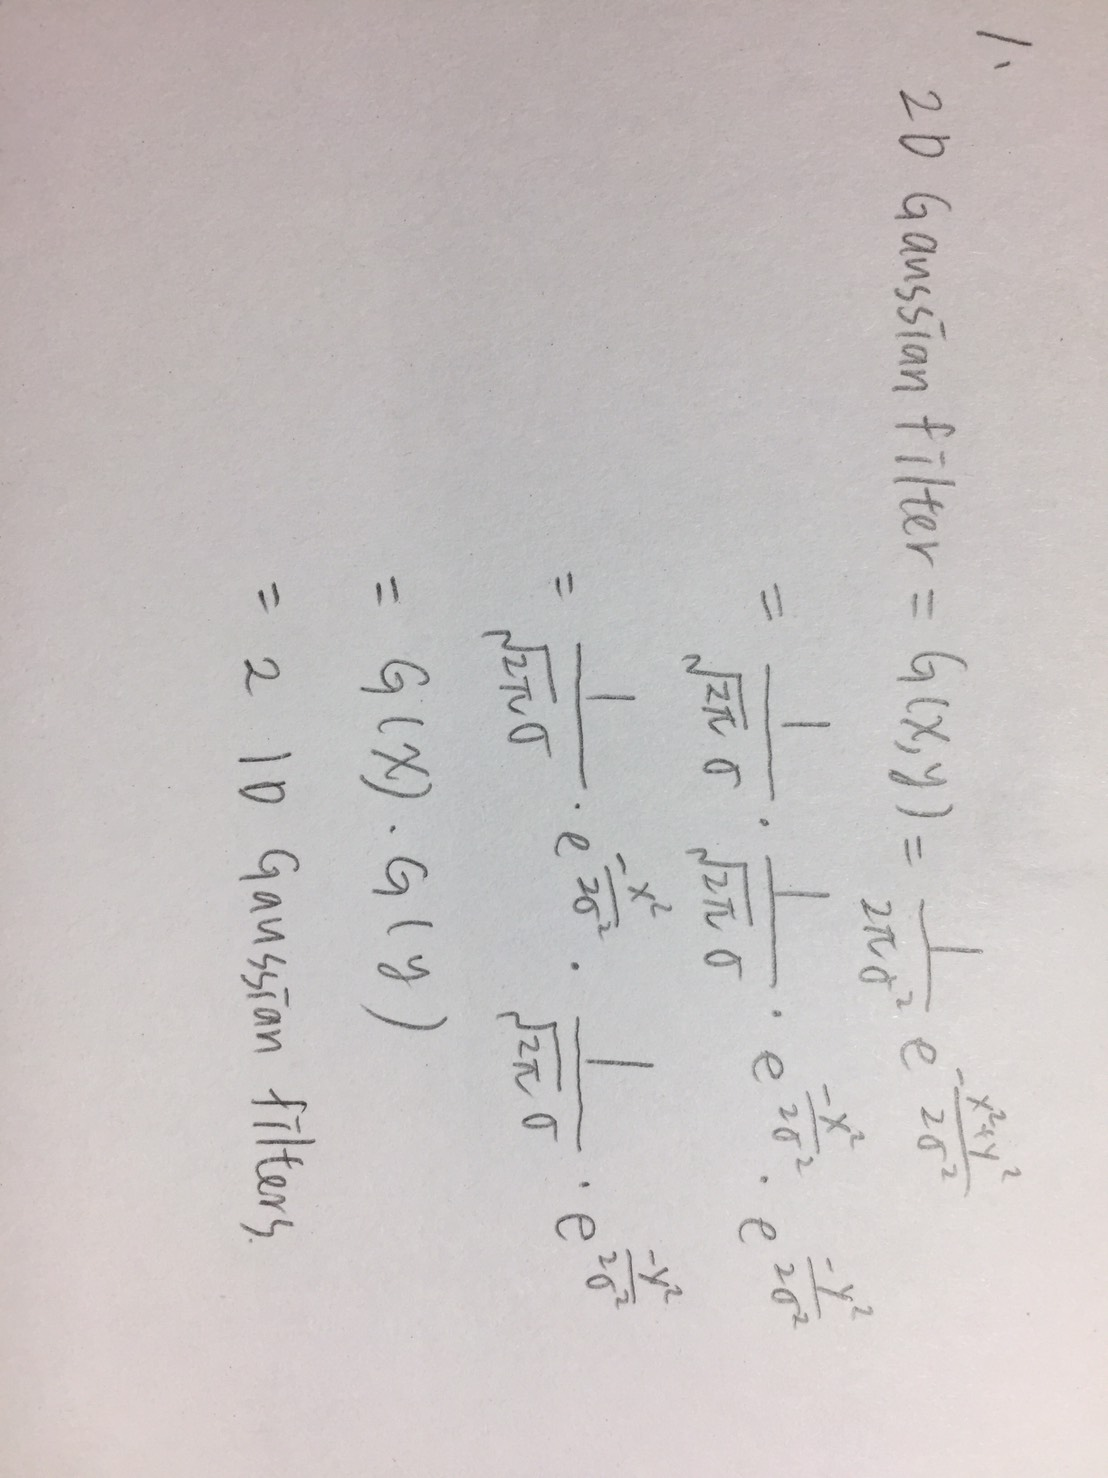 1.
2D Gaussian filter = G(x,y) = \frac{1}{2πσ^2} e^{-\frac{x^2+y^2}{2σ^2}}
= \frac{1}{\sqrt{2π} σ} · \frac{1}{\sqrt{2π} σ} · e^{\frac{-x^2}{2σ^2}} · e^{\frac{-y^2}{2σ^2}}
= \frac{1}{\sqrt{2π} σ} · e^{\frac{-x^2}{2σ^2}} · \frac{1}{\sqrt{2π} σ} · e^{\frac{-y^2}{2σ^2}}
= G(x) · G(y)
= 2 1D Gaussian filters.